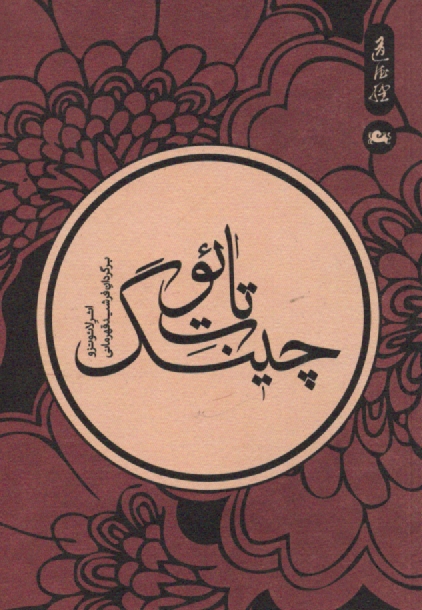 道德經
تائو
ت
چینگ
اثر لائوتزو
برگردان فرشید قهرمانی